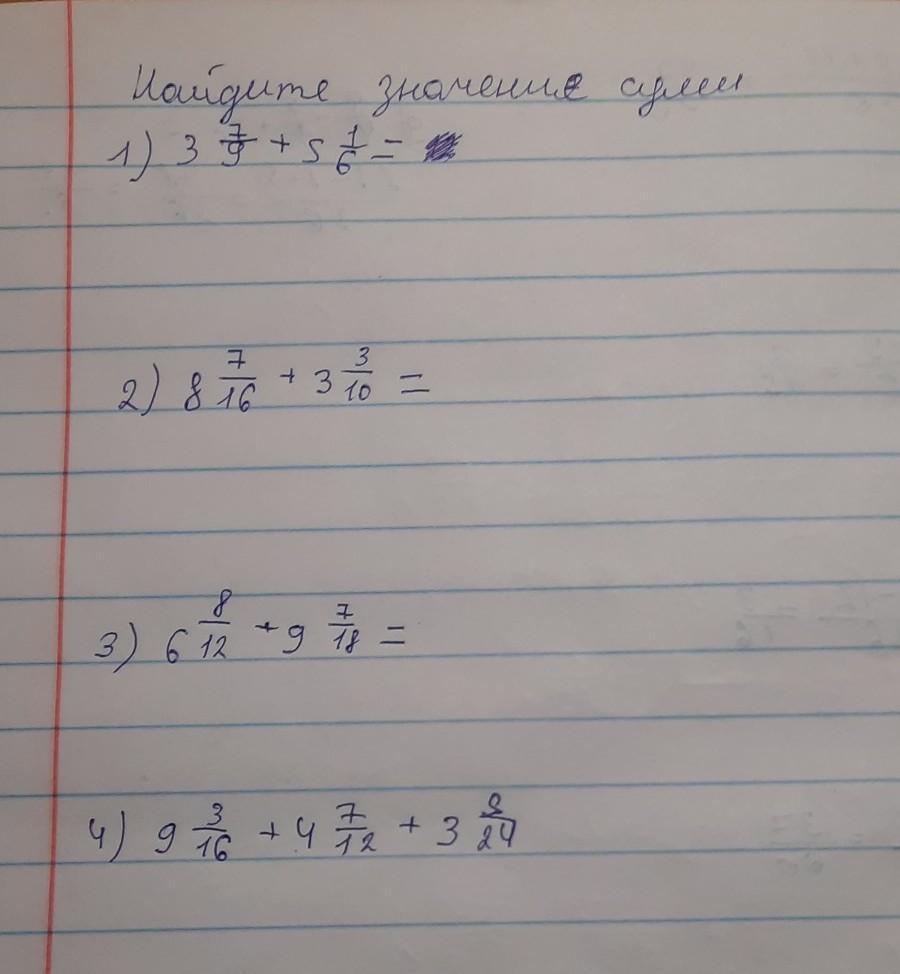 Найдите значение сумм
1) 3 7/9 + 5 1/6 =
2) 8 7/16 + 3 3/10 =
3) 6 8/12 + 9 7/18 =
4) 9 3/16 + 4 7/12 + 3 /24